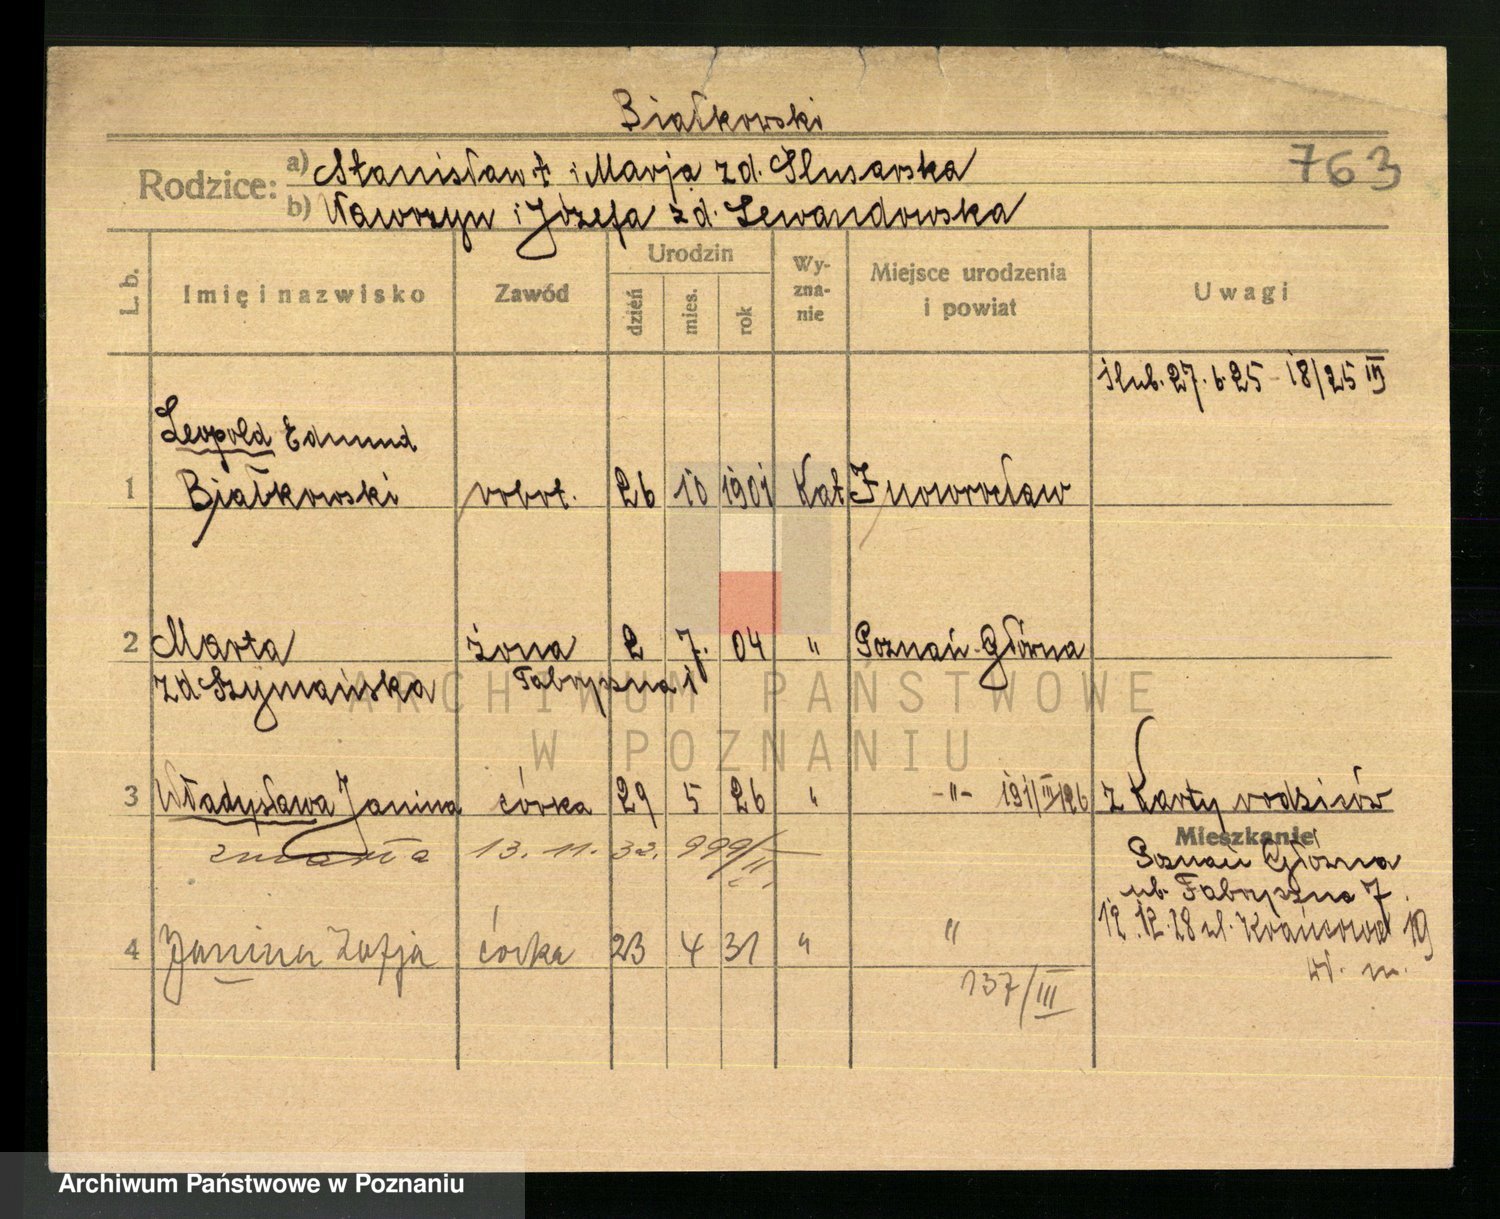 Białkowski
763
Rodzice: a) Stanisław † i Marja zd. Slusarska
b) Wawrzyn i Józefa zd. Lewandowska
L. b. Imię i nazwisko Zawód Urodzin dzień mies. rok Wyznanie Miejsce urodzenia i powiat Uwagi
ślub. 27.6.25 - 18/25 III
Leopold Edmund
1 Białkowski robot. 26 10 1901 Kat Inowrocław
2 Marta żona 2 7. 04 " Poznań-Główna
zd Szymańska Fabryczna 1
3 Władysława Janina córka 29 5 26 " -"- 191/III/126 z Karty rodziców
zmarła 13. 11. 32. 999/II
Mieszkanie
Poznań Główna
ul. Fabryczna 7.
12.12.28 ul. Krańcowa 19
4 Janina Zofja córka 23 4 31 " "
w. m.
137/III
ARCHIWUM PAŃSTWOWE
W POZNANIU
Archiwum Państwowe w Poznaniu